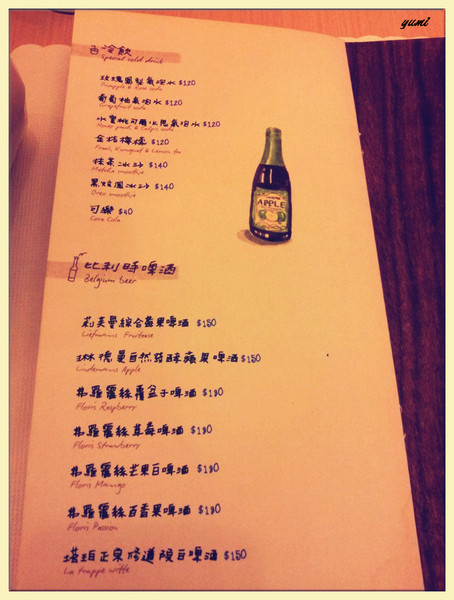 yumi
冷飲
Special cold drink
玫瑰鳳梨氣泡水 $120
Pineapple & Rose soda
葡萄柚氣泡水 $120
Grapefruit soda
水蜜桃可爾必思氣泡水 $120
Honey peach & Calpis soda
金桔檸檬 $120
Fresh Kumquat & Lemon tea
抹茶冰沙 $140
Matcha smoothie
冰沙 $140
Oreo smoothie
可樂 $40
Coca Cola
APPLE
比利時啤酒
Belgium beer
莉芙曼綜合蘋果啤酒 $150
Liefmans Fruitesse
林德曼自然發酵蘋果啤酒 $150
Lindemans Apple
弗羅麗絲覆盆子啤酒 $180
Floris Raspberry
弗羅麗絲草莓啤酒 $180
Floris Strawberry
弗羅麗絲芒果白啤酒 $180
Floris Mango
弗羅麗絲百香果啤酒 $180
Floris Passion
塔珀正宗修道院白啤酒 $150
La trappe witte